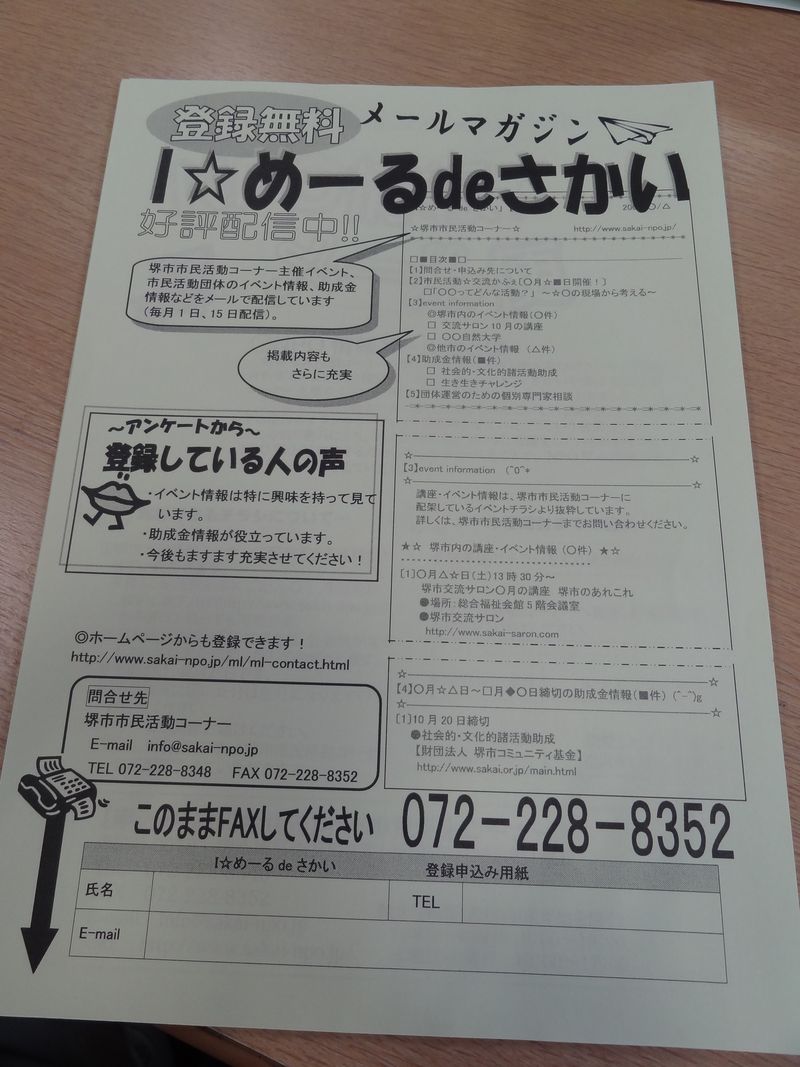 登録無料
メールマガジン
I☆めーるdeさかい
好評配信中!!
堺市市民活動コーナー主催イベント、
市民活動団体のイベント情報、助成金
情報などをメールで配信しています
(毎月1日、15日配信)。
掲載内容も
さらに充実
☆堺市市民活動コーナー☆ http://www.sakai-npo.jp/
□■目次■□
【1】問合せ・申込み先について
【2】市民活動☆交流かふぇ〔〇月☆■日開催!〕
□「〇〇ってどんな活動?」 ~☆〇の現場から考える~
【3】event information
◎堺市内のイベント情報(〇件)
□ 交流サロン10月の講座
□ 〇〇自然大学
◎他市のイベント情報 (△件)
【4】助成金情報(■件)
□ 社会的・文化的諸活動助成
□ 生き生きチャレンジ
【5】団体運営のための個別専門家相談
~アンケートから~
登録している人の声
・イベント情報は特に興味を持って見て
います。
・助成金情報が役立っています。
・今後もますます充実させてください!
【3】event information (^0^*
講座・イベント情報は、堺市市民活動コーナーに
配架しているイベントチラシより抜粋しています。
詳しくは、堺市市民活動コーナーまでお問い合わせください。
★☆ 堺市内の講座・イベント情報 (〇件) ★☆
〔1〕〇月△☆日(土)13時30分~
堺市交流サロン〇月の講座 堺市のあれこれ
●場所:総合福祉会館5階会議室
●堺市交流サロン
http://www.sakai-saron.com
【4】〇月☆△日~□月◆〇日締切の助成金情報(■件) (^-^)g
〔1〕10月20日締切
●社会的・文化的諸活動助成
【財団法人 堺市コミュニティ基金】
http://www.sakai.or.jp/main.html
◎ホームページからも登録できます!
http://www.sakai-npo.jp/ml/ml-contact.html
問合せ先
堺市市民活動コーナー
E-mail info@sakai-npo.jp
TEL 072-228-8348 FAX 072-228-8352
このままFAXしてください 072-228-8352
I☆めーる de さかい 登録申込み用紙
氏名 TEL
E-mail